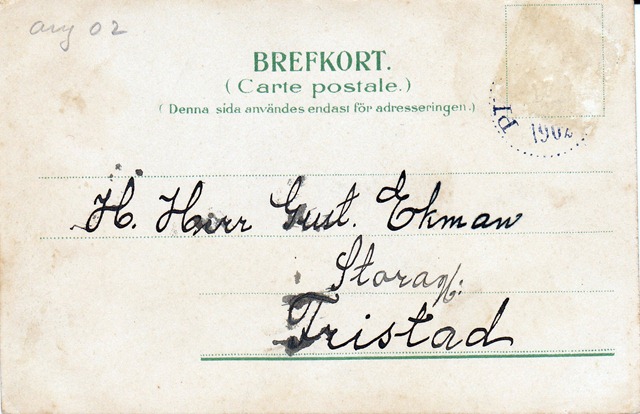 avg 02
BREFKORT.
(Carte postale.)
(Denna sida användes endast för adresseringen.)
PI
1902
H. Herr Gust. Ekman
Stora
Fristad